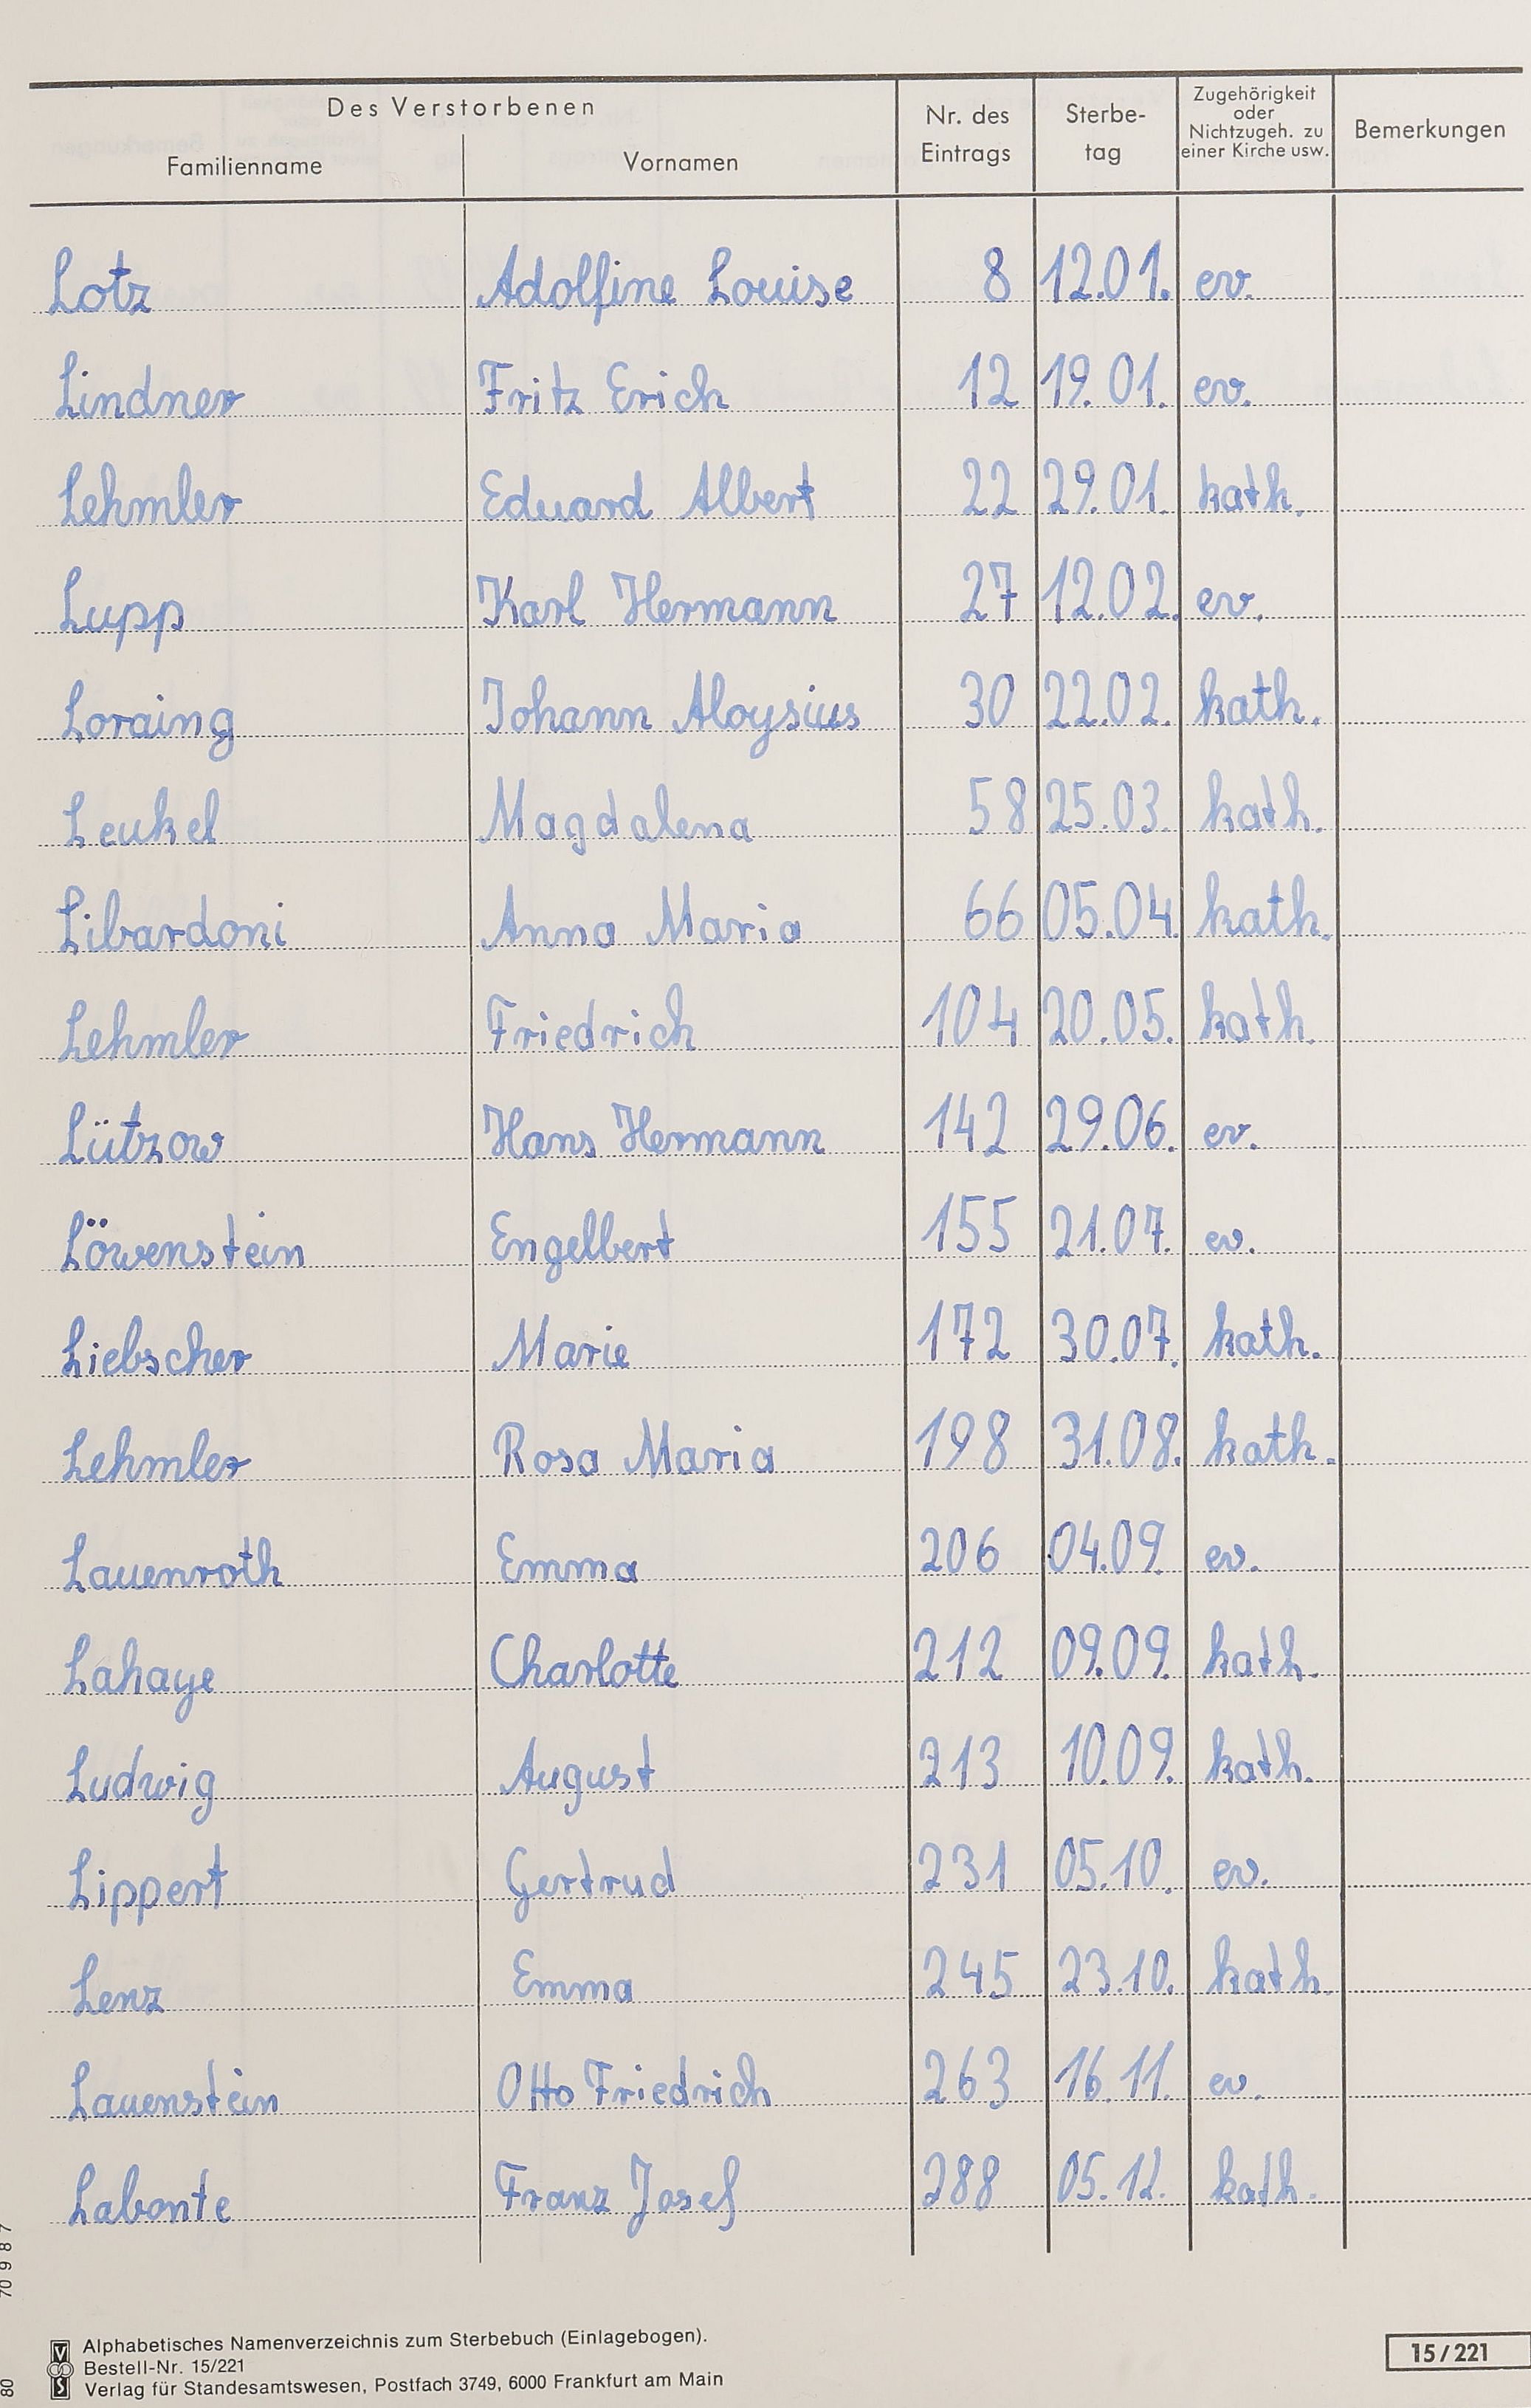 Des Verstorbenen
Familienname Vornamen Nr. des Eintrags Sterbe-tag Zugehörigkeit oder Nichtzugeh. zu einer Kirche usw. Bemerkungen
Lotz Adolfine Louise 8 12.01. ev.
Lindner Fritz Erich 12 19.01. ev.
Lehmler Eduard Albert 22 29.01. kath.
Lupp Karl Hermann 27 12.02. ev.
Loraing Johann Aloysius 30 22.02. kath.
Leukel Magdalena 58 25.03. kath.
Libardoni Anna Maria 66 05.04. kath.
Lehmler Friedrich 104 20.05. kath.
Lützow Hans Hermann 142 29.06. ev.
Löwenstein Engelbert 155 21.07. ev.
Liebscher Marie 172 30.07. kath.
Lehmler Rosa Maria 198 31.08. kath.
Lauenroth Emma 206 04.09. ev.
Lahaye Charlotte 212 09.09. kath.
Ludwig August 213 10.09. kath.
Lippert Gertrud 231 05.10. ev.
Lenz Emma 245 23.10. kath.
Lauenstein Otto Friedrich 263 16.11. ev.
Labonte Franz Josef 288 05.12. kath.
Alphabetisches Namenverzeichnis zum Sterbebuch (Einlagebogen).
Bestell-Nr. 15/221
Verlag für Standesamtswesen, Postfach 3749, 6000 Frankfurt am Main
15/221
80 70987